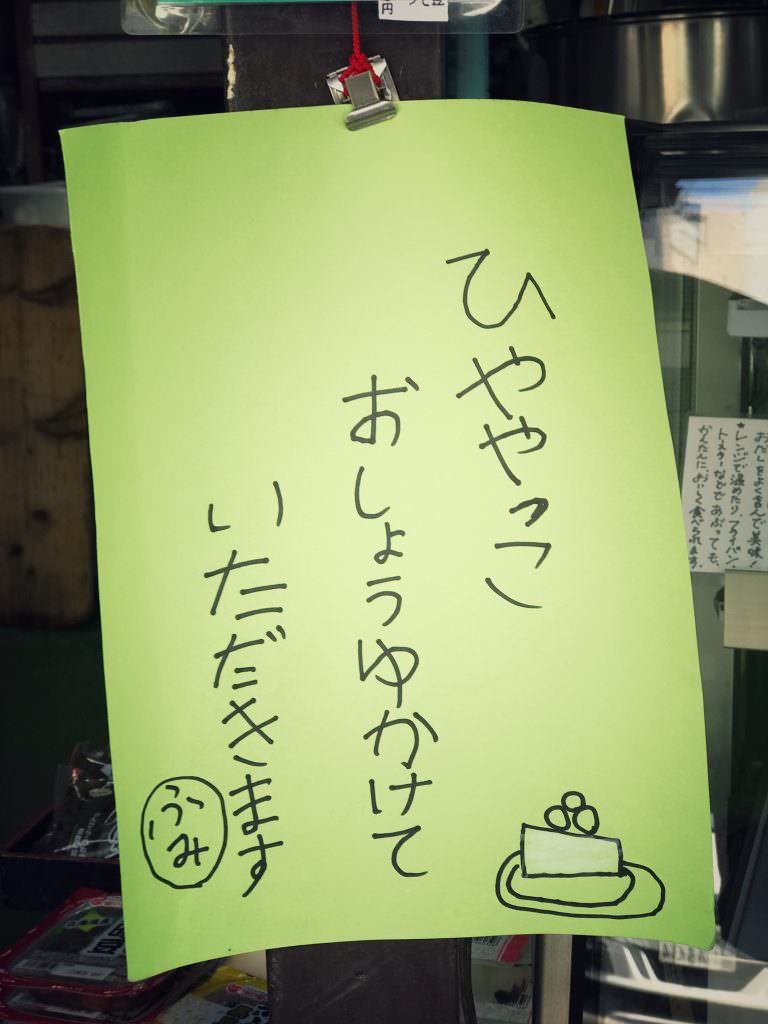 ひややっこ
おしょうゆかけて
いただきます
ふみ
おだしをよく含んで美味!
★レンジで温めたり、フライパン、
トースターなどであぶっても、
かんたんに、おいしく食べられます。
円